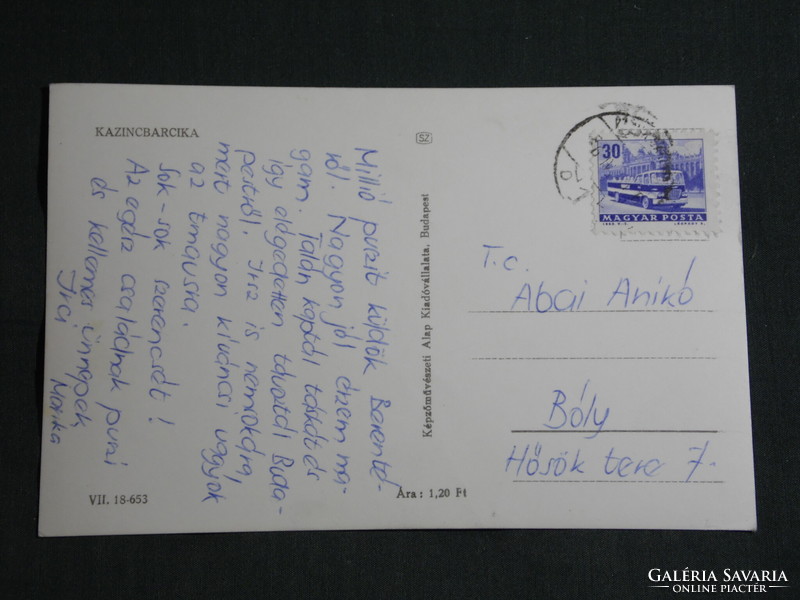 KAZINCBARCIKA
Millió puszit küldök Barenté-
ről. Nagyon jól érzem ma-
gam. Talán kaptál táskát és
így elégedetten távoztál Buda-
pestről. Írsz is nemsokára,
mert nagyon kíváncsi vagyok
az
Sok-sok szerencsét!
Az egész családnak puszi
és kellemes ünnepek
Irci
Marika
VII. 18-653
SZ
Képzőművészeti Alap Kiadóvállalata, Budapest
Ára: 1,20 Ft
30
MAGYAR POSTA
T.c.
Abai Anikó
Bóly
Hősök tere 7.
GALÉRIA SAVARIA
ONLINE PIACTÉR